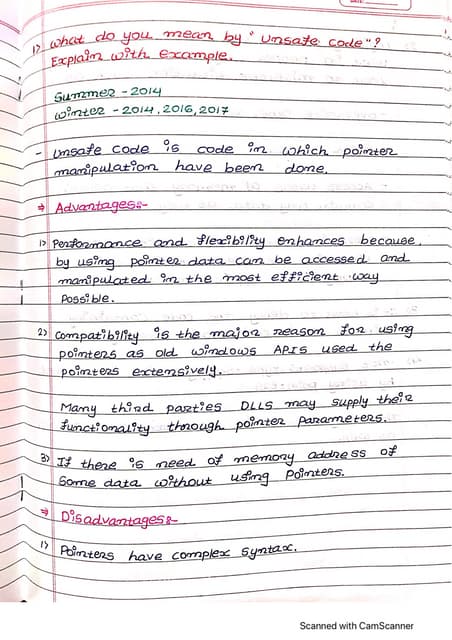 1) what do you mean by "unsafe code"?
Explain with example.
Summer - 2014
Winter - 2014, 2016, 2017
- unsafe code is code in which pointer
manipulation have been done.
⇒ Advantages:-
1) Performance and flexibility enhances because,
by using pointer data can be accessed and
manipulated in the most efficient way
Possible.
2) compatibility is the major reason for using
pointers as old windows APIS used the
pointers extensively.
Many third parties DLLS may supply their
functionality through pointer parameters.
3) If there is need of memory address of
some data without using Pointers.
⇒ Disadvantages:-
1) Pointers have complex syntax.
Scanned with CamScanner